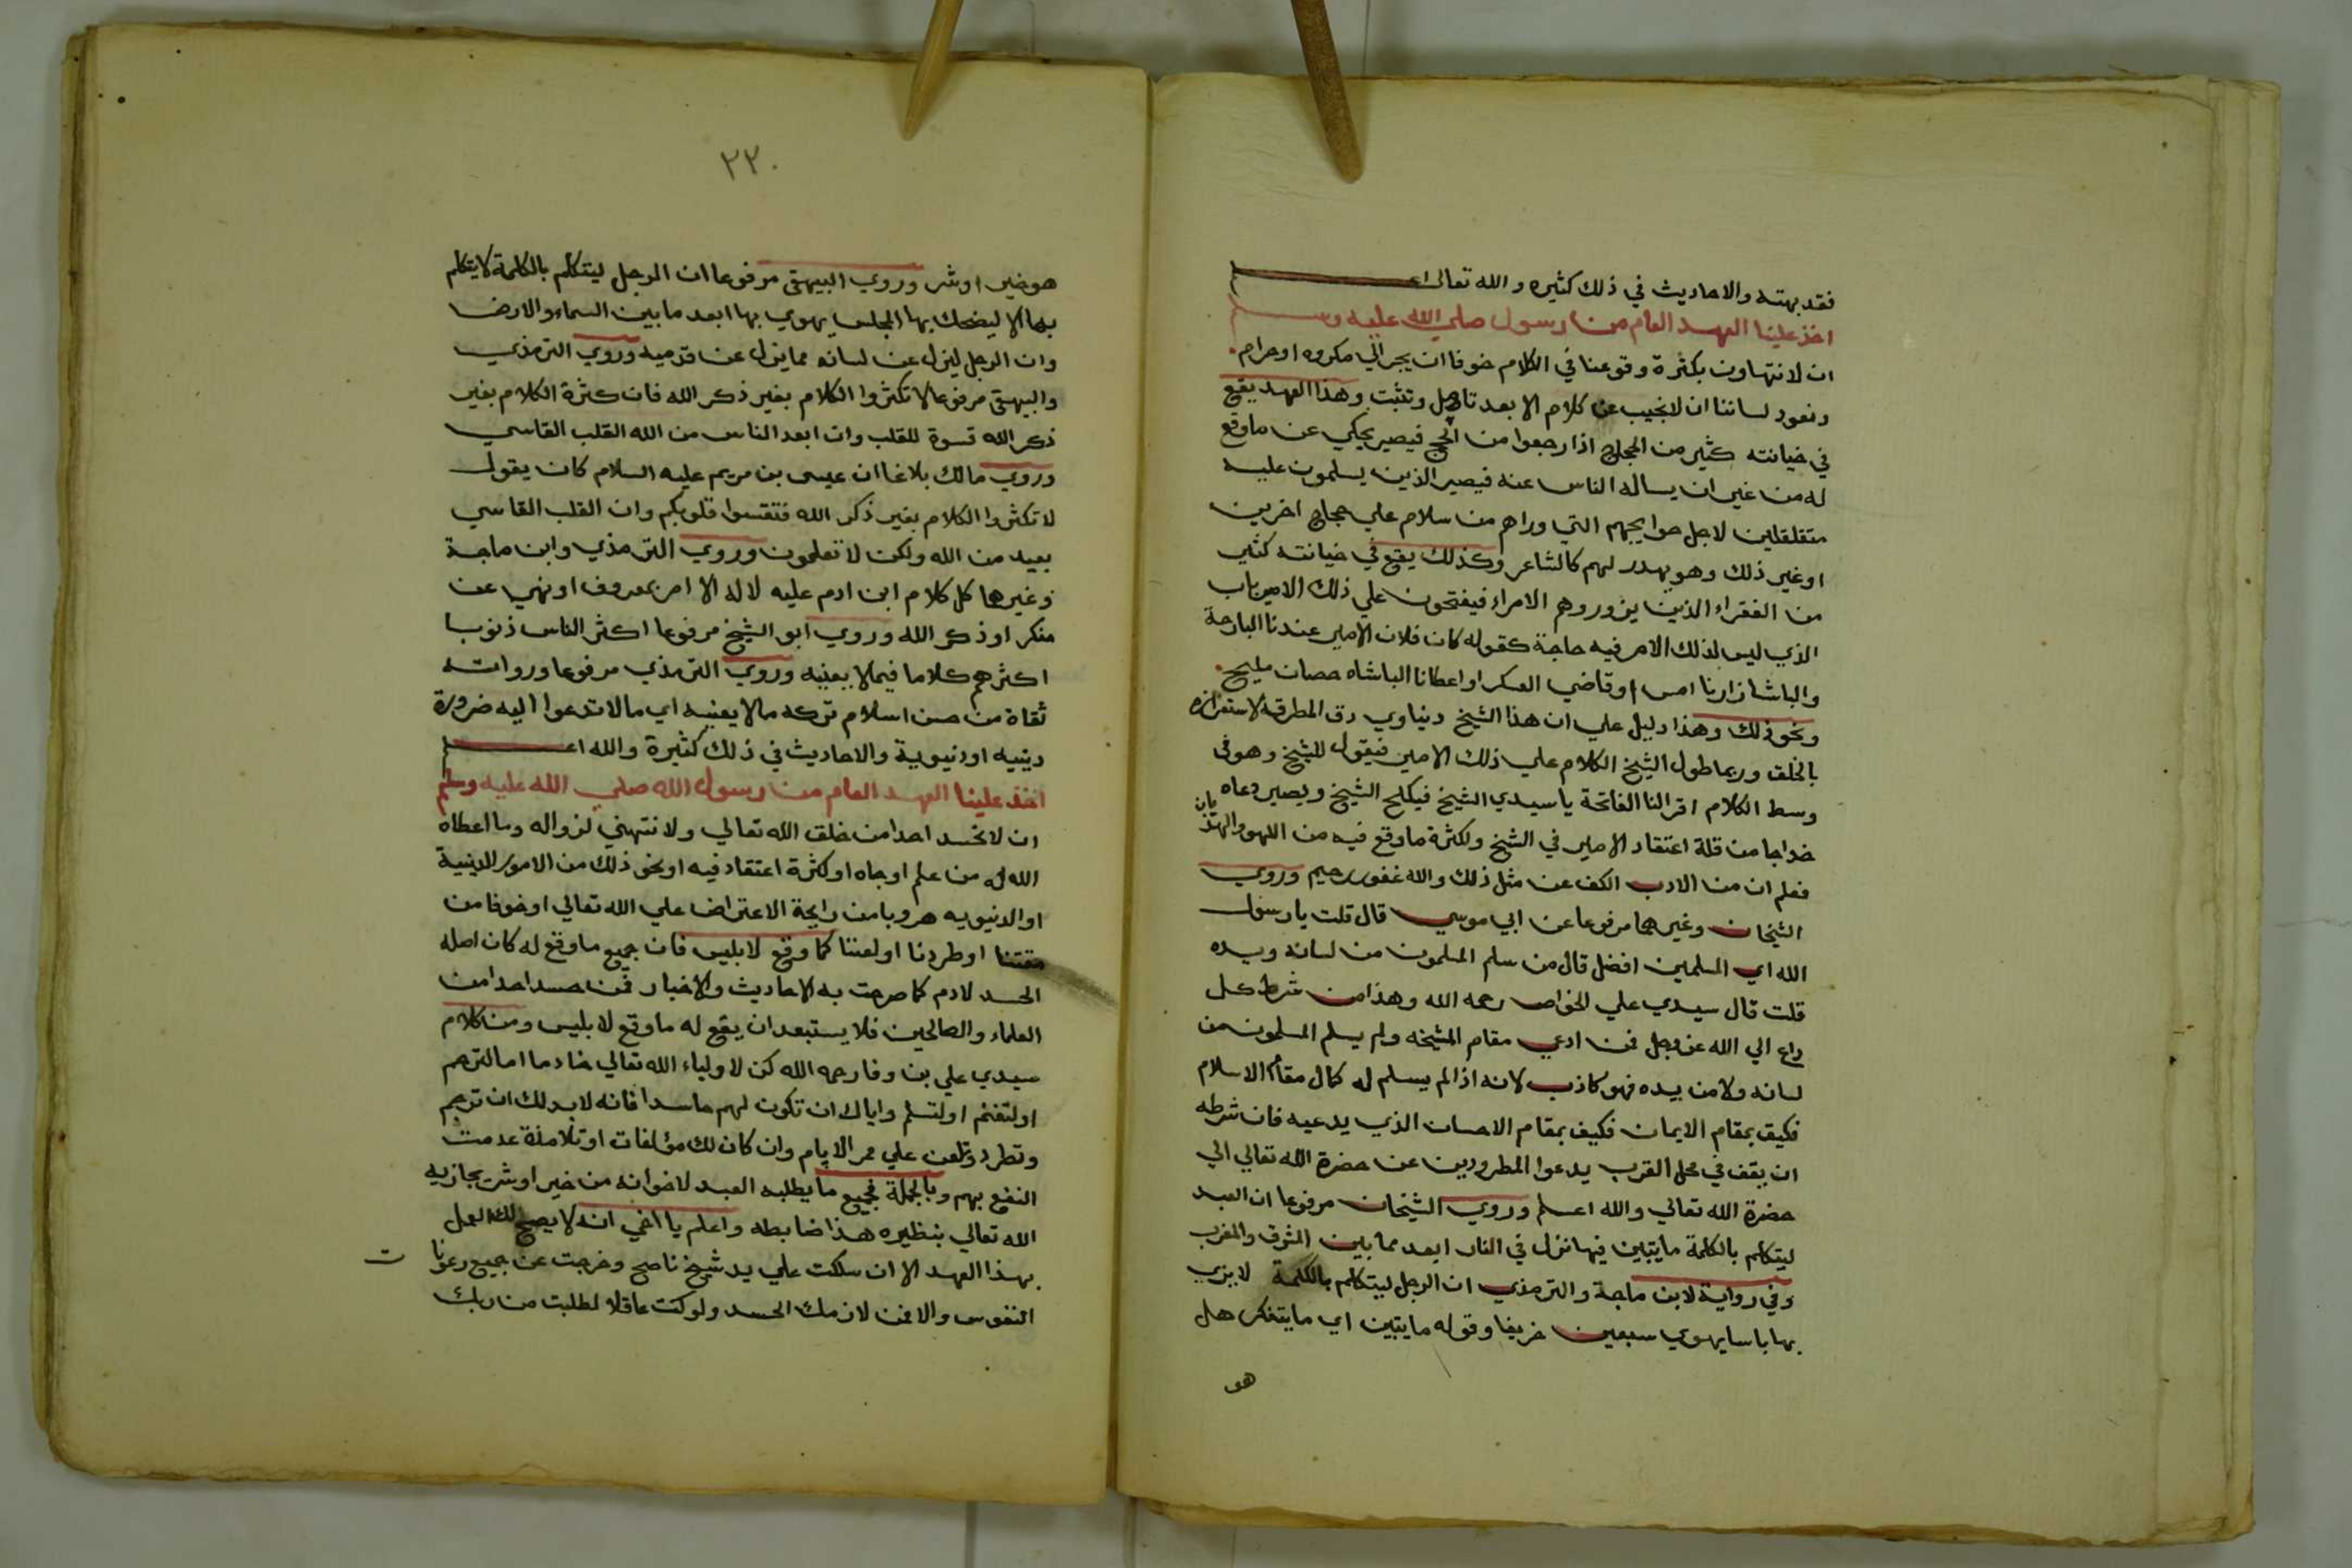 فقد بهته والاحاديث في ذلك كثيره والله تعالى اعلم
اخذ علينا العهد العام من رسول صلي الله عليه وسلم
ان لا نتهاون بكثرة وقوعنا في الكلام خوفا ان يجر الي مكروه او حرام
ونعود لساننا ان لا نجيب عن كلام الا بعد تامل وتثبت وهذا العهد يقع
في خيانته كثير من الحجاج اذا رجعوا من الحج فيصير يحكي عن ما وقع
له من غير ان يساله الناس عنه فيصير الذين يسلمون عليه
متقلقلين لاجل حوايجهم التي وراهم من سلام علي حجاج اخرين
او غير ذلك وهو يهدر لهم كالشاعر وكذلك يقع في خيانته كثير
من الفقراء الذين يزوروهم الامراء فيفتحون علي ذلك الامير باب
الذي ليس لذلك الامر فيه حاجة كقوله كان فلان الامير عندنا البارحة
والباشا زارنا امس او قاضي العسكر او اعطانا الباشاه حصان مليح
ونحو ذلك وهذا دليل علي ان هذا الشيخ دنياوي دق المطرقة لاستغرازه
بالخلق وربما طول الشيخ الكلام علي ذلك الامير فيقول للشيخ وهو في
وسط الكلام اقرالنا الفاتحة يا سيدي الشيخ فيكلح الشيخ ويصير دعاه
خداجا من قلة اعتقاد الامير في الشيخ ولكثرة ما وقع فيه من اللهو والهذيان
فعلم ان من الادب الكف عن مثل ذلك والله غفور رحيم وروي
الشيخان وغيرهما مرفوعا عن ابي موسي قال قلت يا رسول
الله اي المسلمين افضل قال من سلم المسلمون من لسانه ويده
قلت قال سيدي علي الخواص رحمه الله وهذا من شرط كل
داع الي الله عز وجل فمن ادعي مقام المشيخه ولم يسلم المسلمون من
لسانه ولا من يده فهو كاذب لانه اذا لم يسلم له كمال مقام الاسلام
فكيف بمقام الايمان فكيف بمقام الاحسان الذي يدعيه فان شرطه
ان يقف في محل القرب يدعوا المطرودين عن حضرة الله تعالي الي
حضرة الله تعالي والله اعلم وروي الشيخان مرفوعا ان العبد
ليتكلم بالكلمة ما يتبين فيها نزل في النار ابعد مما بين المشرق والمغرب
وفي رواية لابن ماجة والترمذي ان الرجل ليتكلم بالكلمة لا يري
بها باسا يهوي سبعين خريفا وقوله ما يتبين اي ما يتفكر هل
هو
٢٢٠
هو خير او شر وروي البيهقي مرفوعا ان الرجل ليتكلم بالكلمة لا يتكلم
بها الا ليضحك بها المجلس يهوي بها ابعد ما بين السماء والارض
وان الرجل ليزل عن لسانه مما يزل عن قدميه وروي الترمذي
والبيهقي مرفوعا لا تكثروا الكلام بغير ذكر الله فان كثرة الكلام بغير
ذكر الله قسوة للقلب وان ابعد الناس من الله القلب القاسي
وروي مالك بلاغا ان عيسى بن مريم عليه السلام كان يقول
لا تكثروا الكلام بغير ذكر الله فتقسوا قلوبكم وان القلب القاسي
بعيد من الله ولكن لا تعلمون وروي الترمذي وابن ماجة
وغيرهما كل كلام ابن ادم عليه لا له الا امر بمعروف او نهي عن
منكر او ذكر الله وروي ابو الشيخ مرفوعا اكثر الناس ذنوبا
اكثرهم كلاما فيما لا يعنيه وروي الترمذي مرفوعا ورواته
ثقاة من حسن اسلام تركه ما لا يعنيه اي ما لا تدعوا اليه ضرورة
دينيه او دنيوية والاحاديث في ذلك كثيرة والله اعلم
اخذ علينا العهد العام من رسول الله صلي الله عليه وسلم
ان لا نحسد احدا من خلق الله تعالي ولا نتهني لزواله وما اعطاه
الله له من علم او جاه او لكثرة اعتقاد فيه او نحو ذلك من الامور الدينية
او الدنيويه هروبا من رايحة الاعتراض علي الله تعالي او خوفا من
مقتنا او طردنا او لعنتنا كما وقع لابليس فان جميع ما وقع له كان اصله
الحسد لادم كما صرحت به الاحاديث والاخبار فمن حسد احدا من
العلماء والصالحين فلا يستبعد ان يقع له ما وقع لابليس ومن كلام
سيدي علي بن وفا رحمه الله كن لاولياء الله تعالي خادما اما لترحم
او لتغنم او لتسلم واياك ان تكون لهم حاسدا فانه لا بد لك ان ترجم
وتطرد وتلعن علي ممر الايام وان كان لك مؤلفات او تلامذة عدمت
النفع بهم وبالجملة فجميع ما يطلبه العبد لاخوانه من خير او شر يجازيه
الله تعالي بنظيره هذا ضابطه واعلم يا اخي انه لا يصح لك العمل
بهذا العهد الا ان سلكت علي يد شيخ ناصح وخرجت عن جميع رعونات
النفوس والا فمن لازمك الحسد ولو كنت عاقلا لطلبت من ربك